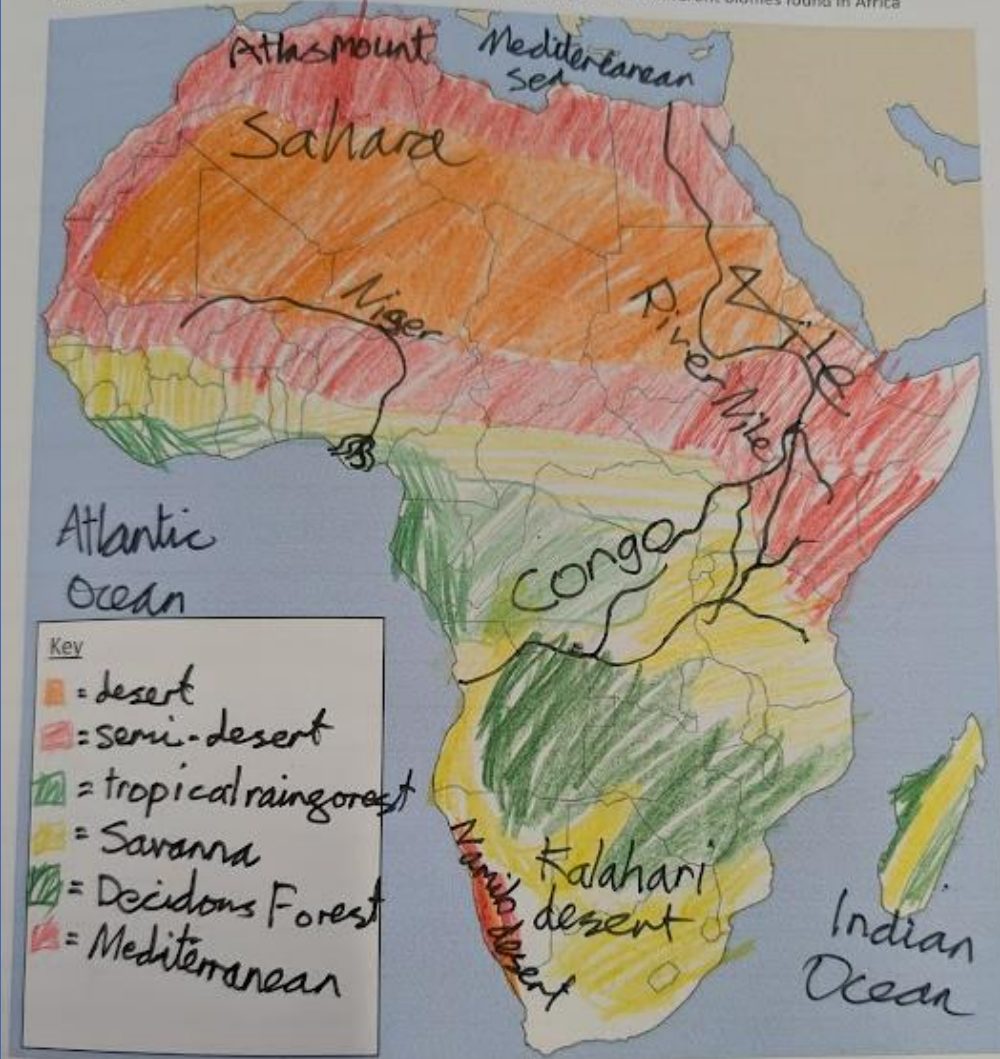 found in Africa
Atlas mount
Mediterranean
sea
Sahara
Niger
River Nile
Nile
Atlantic
Ocean
Congo
Key
= desert
= semi-desert
= tropical raingorest
= Savanna
= Decidous Forest
= Mediterranean
Namib desert
Kalahari
desert
Indian
Ocean